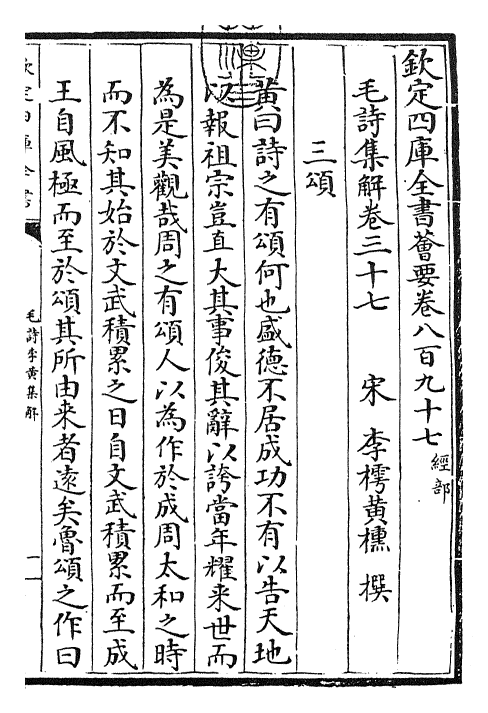 欽定四庫全書薈要卷八百九十七 經部
毛詩集解卷三十七 宋 李樗黄櫄 撰
三頌
黄曰詩之有頌何也盛德不居成功不有以告天地
以報祖宗豈直大其事俊其辭以誇當年耀来世而
為是美觀哉周之有頌人以為作於成周太和之時
而不知其始於文武積累之日自文武積累而至成
王自風極而至於頌其所由来者逺矣魯頌之作曰
欽定四庫全書
毛詩李黄集解
一